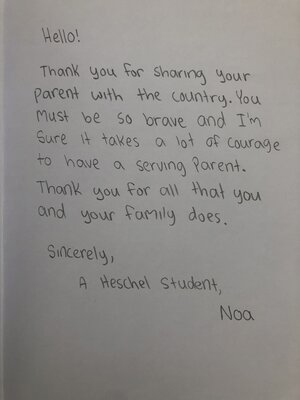 Hello!
Thank you for sharing your
parent with the country. You
must be so brave and I'm
sure it takes a lot of courage
to have a serving parent.
Thank you for all that you
and your family does.
Sincerely,
A Heschel Student,
Noa